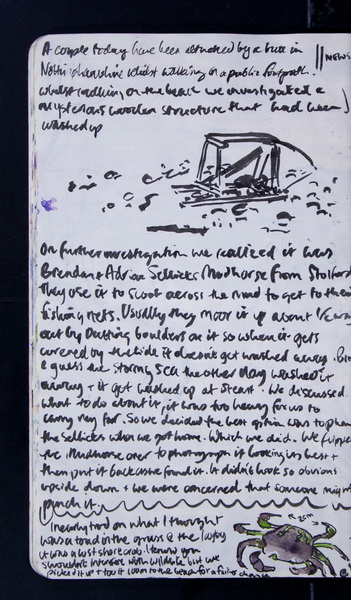 A couple today have been attacked by a bull in
Nottinghamshire whilst walking on a public footpath.
NEWS
Whilst walking on the beach we investigated a
mysterious wooden structure that had been
washed up
On further investigation we realized it was
Brendan & Adrian Sellicks Mudhorse from Stolford
They use it to scoot across the mud to get to their
fishing nets. Usually they moor it up about
out by putting boulders on it so when it gets
covered by the tide it doesn't get washed away. But
I guess the stormy sea the other day washed it
away + it got washed up at Steart. We discussed
what to do about it, it was too heavy for us to
carry very far. So we decided the best option was to phone
the Sellicks when we got home. Which we did. We flipped
the Mudhorse over to photograph it looking its best +
then put it back as we found it. It didn't look so obvious
upside down + we were concerned that someone might
pinch it.
I nearly trod on what I thought
was a toad in the grass @ the
it was a lost shore crab. I know you
shouldn't interfere with wildlife but we
picked it up + took it 100m to the beach for a fairer chance
2cm